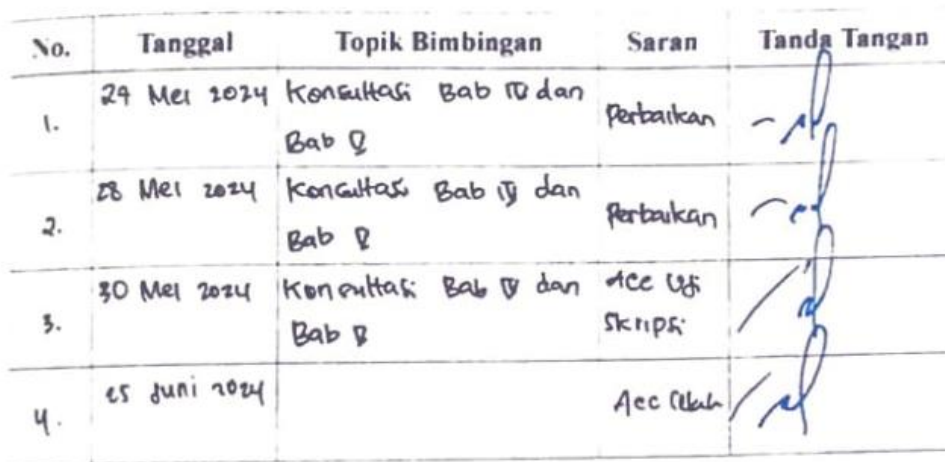 No. Tanggal Topik Bimbingan Saran Tanda Tangan
1. 29 Mei 2024 Konsultasi Bab IV dan Bab V Perbaikan
2. 28 Mei 2024 Konsultasi Bab IV dan Bab V Perbaikan
3. 30 Mei 2024 Konsultasi Bab IV dan Bab V Acc Uji Skripsi
4. 25 Juni 2024 Acc